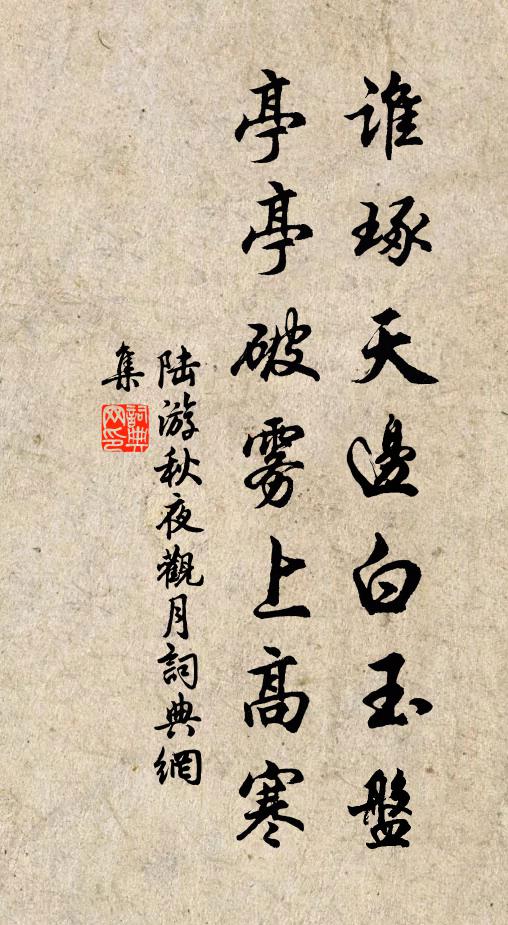 誰琢天邊白玉盤
亭亭破雾上高寒
陆游秋夜觀月詞典網
集
詞典
网印